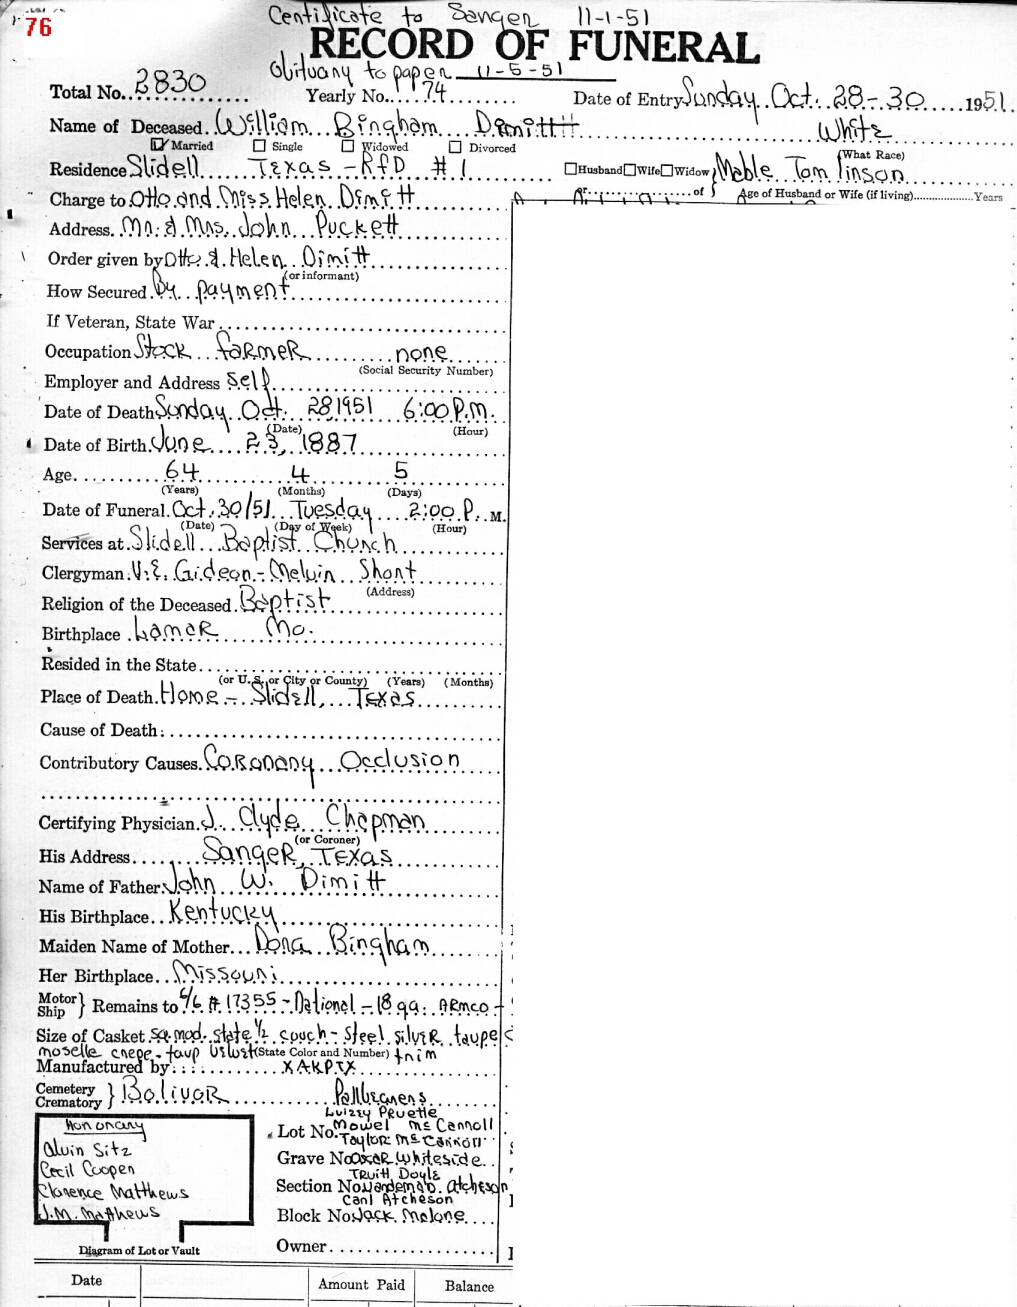 76
Certificate to Sanger 11-1-51
RECORD OF FUNERAL
Obituary to paper 11-5-51
Total No. 2830 Yearly No. 74 Date of Entry Sunday Oct. 28-30 1951
Name of Deceased. William Bingham Dimitt White
Married Single Widowed Divorced (What Race)
Residence Slidell Texas - RFD #1 Husband Wife Widow of } Mable Tom Pinson
Age of Husband or Wife (if living) Years
Charge to Otto and Miss Helen Dimitt
Address. Mr. & Mrs. John Puckett
Order given by Otto & Helen Dimitt
(or informant)
How Secured. By payment
If Veteran, State War
Occupation Stock farmer none
(Social Security Number)
Employer and Address Self
Date of Death Sunday Oct. 28, 1951 6:00 P.M.
(Date) (Hour)
Date of Birth. June 23, 1887
Age 64 4 5
(Years) (Months) (Days)
Date of Funeral. Oct. 30/51 Tuesday 2:00 P. M.
(Date) (Day of Week) (Hour)
Services at Slidell Baptist Church
Clergyman. V.E. Gideon - Melvin Short
(Address)
Religion of the Deceased. Baptist
Birthplace Lamar Mo.
Resided in the State
(or U. S. or City or County) (Years) (Months)
Place of Death. Home - Slidell, Texas
Cause of Death:
Contributory Causes. Coronary Occlusion
Certifying Physician. J. Clyde Chapman
(or Coroner)
His Address Sanger, Texas
Name of Father John W. Dimitt
His Birthplace Kentucky
Maiden Name of Mother Dora Bingham
Her Birthplace Missouri
Motor Ship } Remains to % # 17355 - National - 18 ga. Armco -
Size of Casket sq. mod. state ½ couch - steel silver taupe
moselle crepe - taup velvet (State Color and Number) trim
Manufactured by: XAKPIX
Cemetery Crematory } Bolivar Pallbearers
Honorary
Alvin Sitz
Cecil Cooper
Clarence Matthews
J.M. Matthews
Diagram of Lot or Vault
Pruette
Lot No. Mowel McCarroll
Taylor McCarroll
Grave No. Oscar Whiteside
Truitt Doyle
Section No. Atcheson
Carl Atcheson
Block No. Jack Malone
Owner
Date Amount Paid Balance